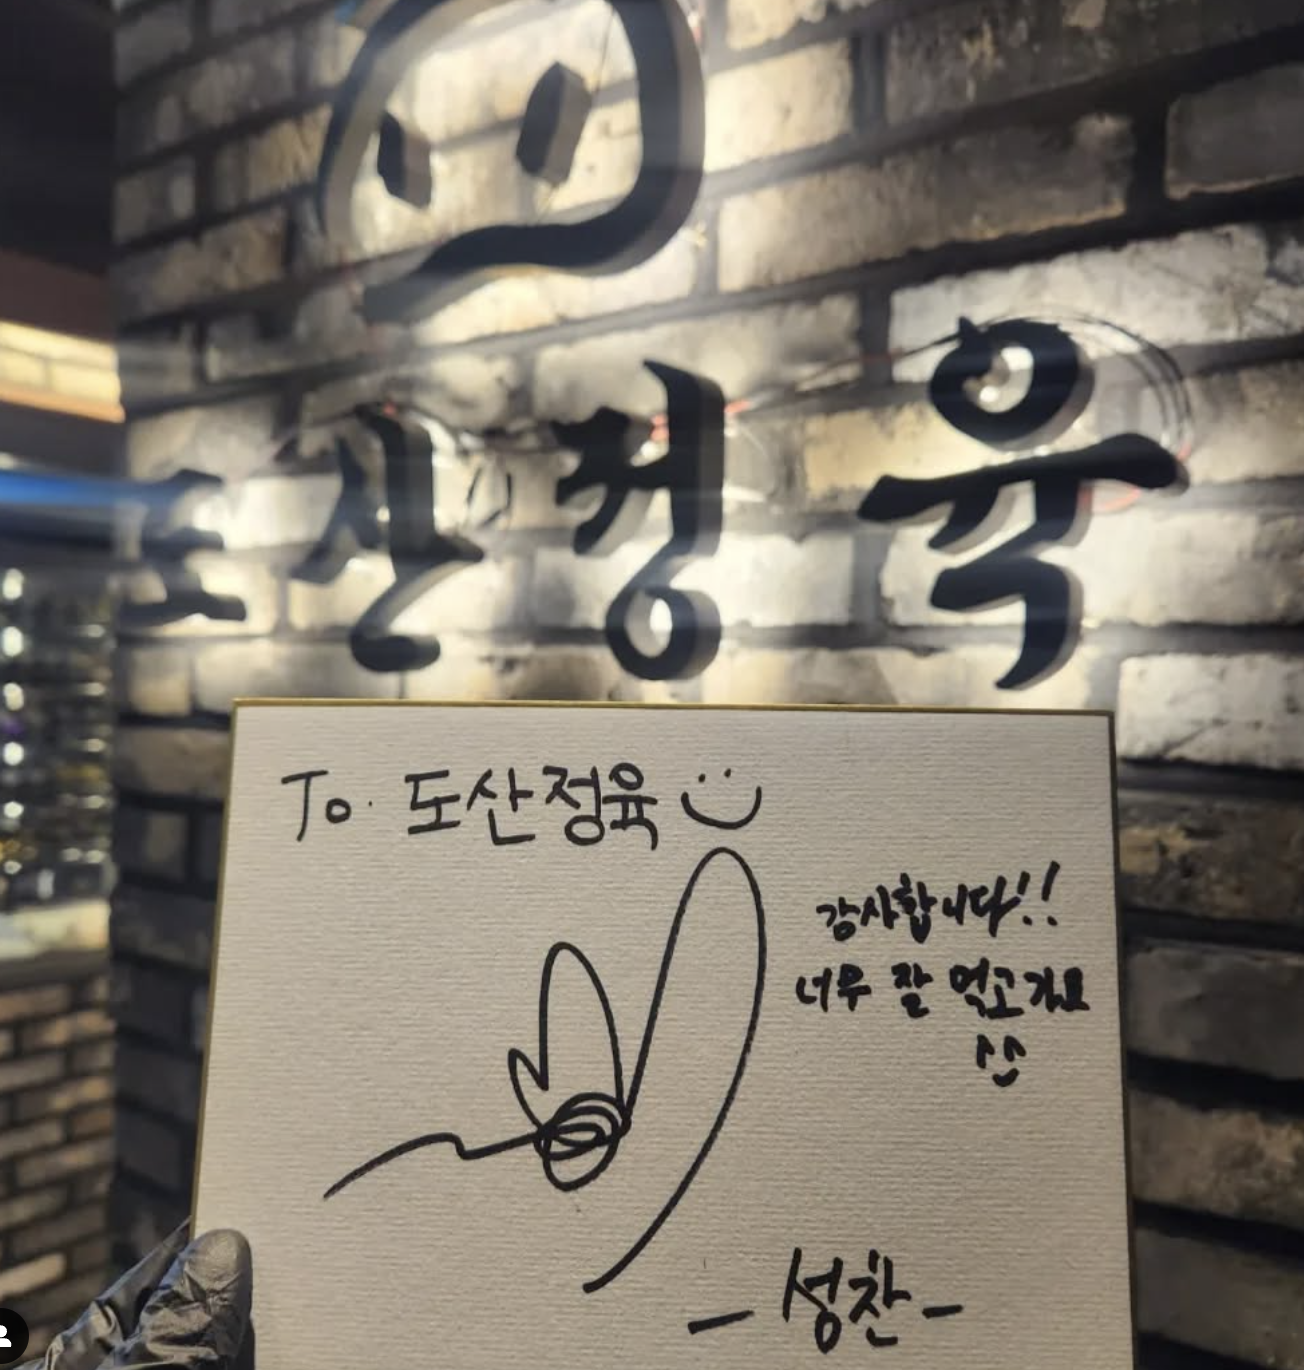 도산정육
To. 도산정육
감사합니다!!
너무 잘 먹고가요
- 성찬 -